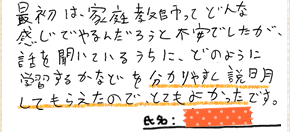 最初は、家庭教師ってどんな
感じでやるんだろうと不安でしたが、
話を聞いているうちに、どのように
学習するかなどを分かりやすく説明
してもらえたので、とてもよかったです。
氏名: